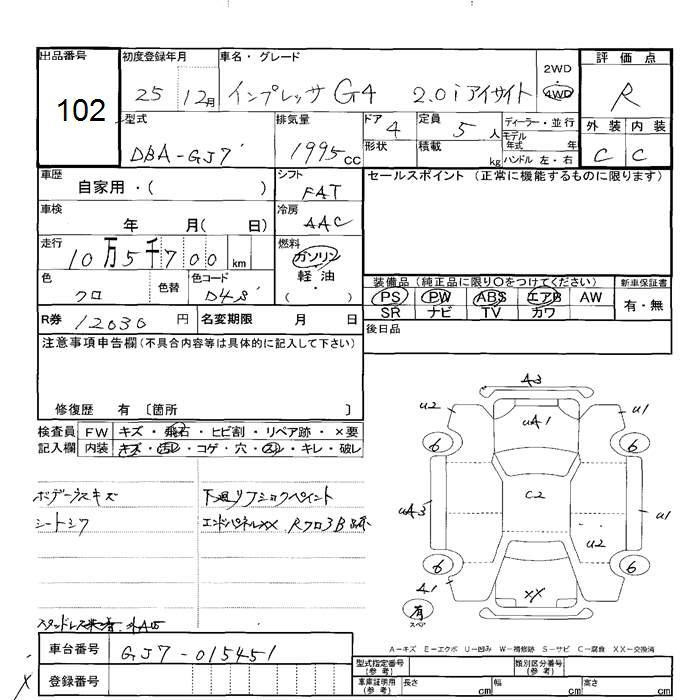 出品番号
102
初度登録年月
25 12月
車名・グレード
インプレッサ G4 2.0i アイサイト
2WD
4WD
評価点
R
外装 内装
C C
型式
DBA-GJ7
排気量
1995cc
ドア
4
定員
5 人
ディーラー・並行
モデル
年式 年
形状
積載
kg
ハンドル 左・右
車歴
自家用・( )
シフト
FAT
セールスポイント (正常に機能するものに限ります)
車検
年 月( 日)
冷房
AAC
走行
10万5千700km
燃料
ガソリン
軽・油
・( )
色
クロ
色替
色コード
D4S
装備品 (純正品に限り○をつけてください)
新車保証書
PS PW ABS エアB AW
SR ナビ TV カワ
有・無
R券 12030 円
名変期限 月 日
後日品
注意事項申告欄(不具合内容等は具体的に記入して下さい)
修復歴 有 〔箇所 〕
検査員
記入欄
FW キズ・飛石・ヒビ割・リペア跡・×要
内装 キズ・汚レ・コゲ・穴・スレ・キレ・破レ
ボデーラスキズ 下廻リフショクペイント
シートシワ エンドパネルXX RクロスB
A3
U2
UA1
U1
6
6
UA3
C2
U1
U2
6
6
A1
XX
有
スペア
A-キズ E-エクボ U-凹み W-補修跡 S-サビ C-腐食 XX-交換済
車台番号
GJ7-015451
登録番号
型式指定番号
(参考)
類別区分番号
(参考)
車庫証明用
(参考)
長さ cm
幅 cm
高さ cm